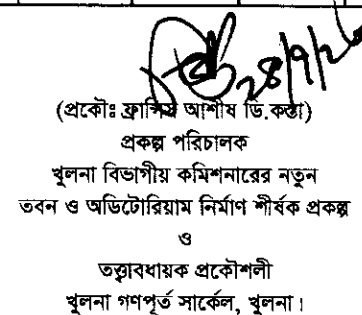 ২৪/৭/২৫
(প্রকৌঃ ফ্রান্সিস আশীষ ডি.কস্তা)
প্রকল্প পরিচালক
খুলনা বিভাগীয় কমিশনারের নতুন
ভবন ও অডিটোরিয়াম নির্মাণ শীর্ষক প্রকল্প
ও
তত্ত্বাবধায়ক প্রকৌশলী
খুলনা গণপূর্ত সার্কেল, খুলনা।